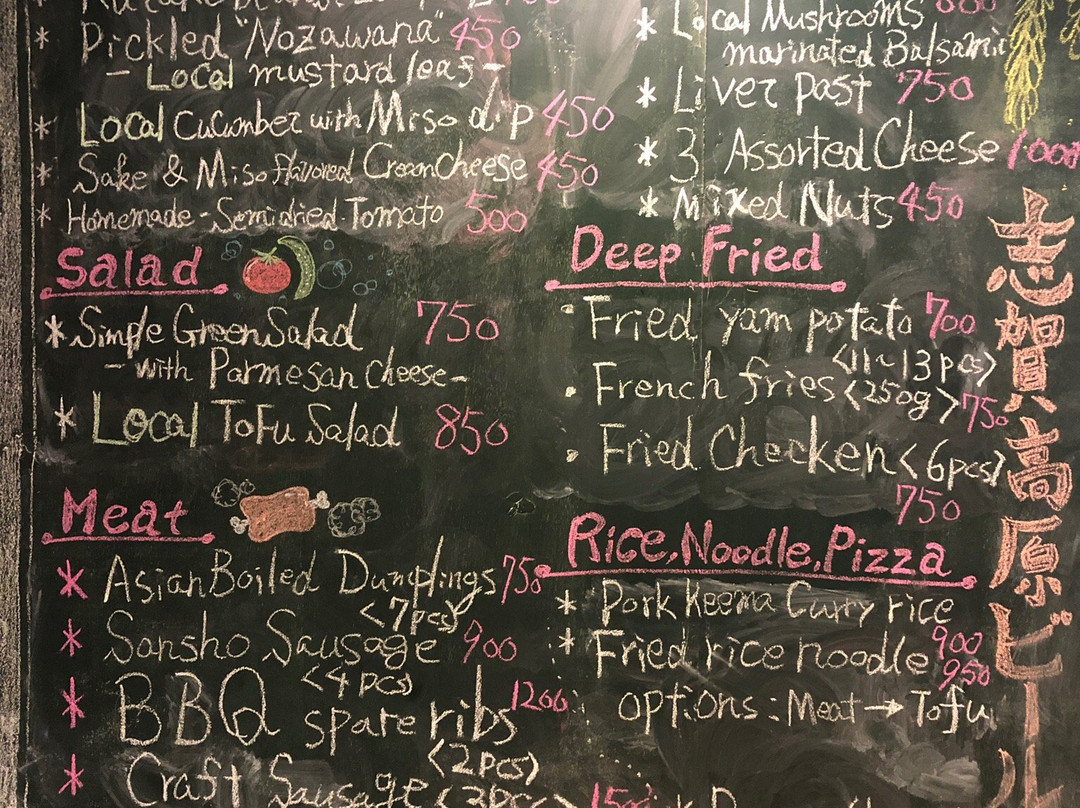 Pickled "Nozawana" 450
- Local mustard leaf -
Local Cucumber with Miso dip 450
Sake & Miso flavored Cream Cheese 450
Homemade-Semidried-Tomato 500
Salad
Simple Green Salad 750
- with Parmesan Cheese -
Local ToFu Salad 850
Meat
Asian Boiled Dumplings 750
<7pcs>
Sansho Sausage 900
<4pcs>
BBQ spare ribs 1200
<2pcs>
Craft Sausage
Local Mushrooms
marinated Balsamic
Liver past 750
3 Assorted Cheese 1000
Mixed Nuts 450
Deep Fried
Fried yam potato 700
<11~13pcs>
French fries <250g> 750
Fried Checken <6pcs>
750
Rice,Noodle,Pizza
Pork Keema Curry rice
900
Fried rice noodle
950
options: Meat → Tofu
志賀高原ビール